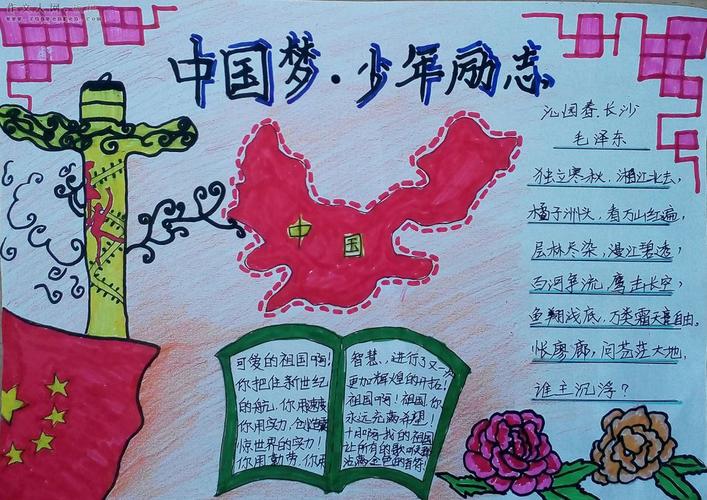 作文人网
中国梦·少年励志
沁园春.长沙
毛泽东
独立寒秋,湘江北去,
橘子洲头,看万山红遍,
层林尽染,漫江碧透,
百河争流,鹰击长空,
鱼翔浅底,万类霜天竞自由。
怅寥廓,问苍茫大地,
谁主沉浮?
中国
可爱的祖国啊!
你把住新世纪
的舵,你用速度
你用实力,创造
惊世界的实力!
你用勤劳、你用
智慧、,进行了又一次
更加辉煌的开拓!
祖国啊!祖国,你
永远充满希望!
十月啊-我的祖国
让所有的歌
沾满金色的音符!